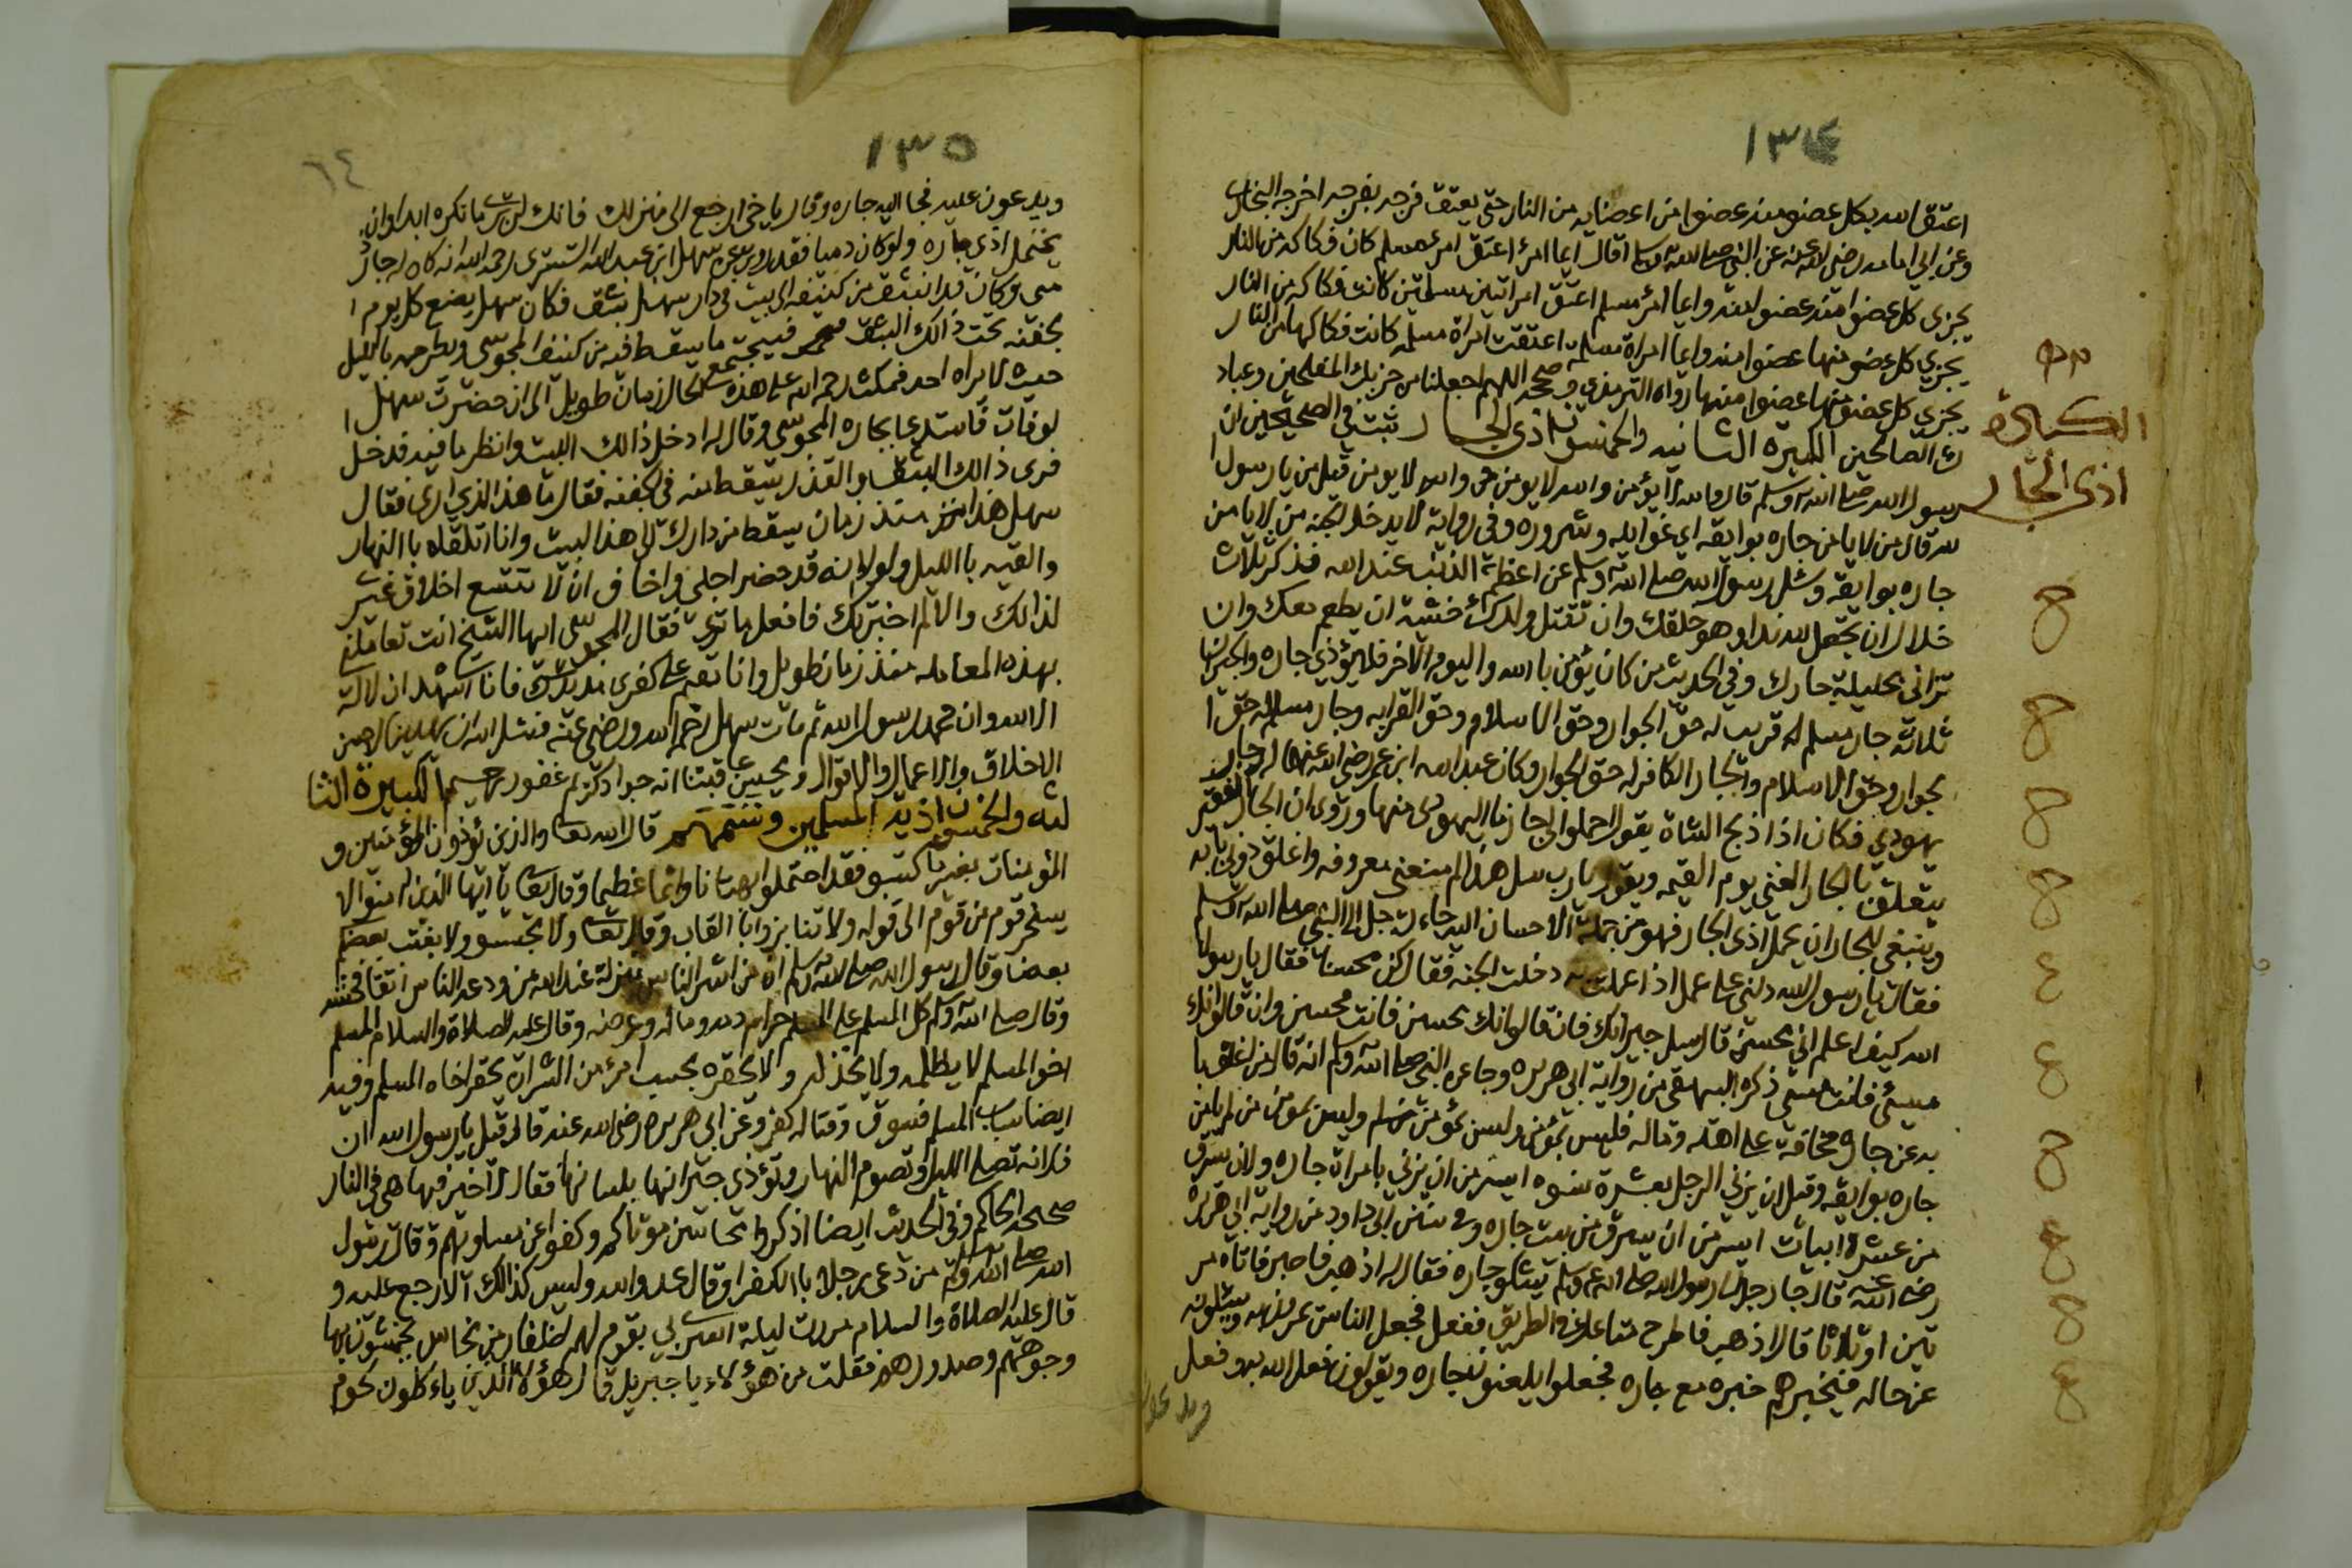 ١٣٤
اعتق الله بكل عضو منه عضوا من اعضايه من النار حتى يعتق فرجه بفرجه اخرجه البخاري
وعن ابي امامه رضي الله عنه عن النبي صلى الله عليه وسلم قال ايما امرئ اعتق امرء مسلم كان فكاكه من النار
يجزى كل عضوا منه عضوا منه وايما امرئ مسلم اعتق امراتين مسلمتين كانت فكاكه من النار
يجزي كل عضو منها عضوا منه وايما امراة مسلمة اعتقت امراة مسلمه كانت فكاكها من النار
يجزي كل عضو منها عضوا منها رواه الترمذي وصححه اللهم اجعلنا من حزبك المفلحين وعباد
ك الصالحين الكبيرة الثانيه والخمسون اذى الجار ثبت في الصحيحين ان
رسول الله صلى الله وسلم قال والله لا يؤمن والله لا يومن والله لا يومن قيل من يا رسول ا
لله قال من لا يامن جاره بوايقه اي غوايله وشروره وفي رواية لا يدخل الجنه من لا يامن
جاره بوايقه وسئل رسول الله صلى الله وسلم عن اعظم الذنب عند الله فذكر ثلاث
خلال ان تجعل لله ندا وهو خلقك وان تقتل ولدك خشية ان يطعم معك وان
تزاني بحليلة جارك وفي الحديث من كان يؤمن بالله واليوم الاخر فلا يؤذي جاره والجيران
ثلاثة جار مسلم قريب له حق الجوار وحق الاسلام وحق القرابه وجار مسلم له حق ا
لجوار وحق الاسلام والجار الكافر له حق الجوار وكان عبد الله ابن عمر رضي الله عنهما له جار
يهودي فكان اذا ذبح الشاة يقول احملوا الى جارنا اليهودي منها وروي ان الجار الفقير
يتعلق بالجار الغني يوم القيمه ويقول يارب سل هذا لم منعني معروفه واغلق دوني بابه
وينبغي للجار ان يحمل اذى الجار فهو من جملة الاحسان اليه جاء رجل الى النبي صلى الله وسلم
فقال يا رسول الله دلني على عمل اذا عملت به دخلت الجنه فقال كن محسنا فقال يا رسول
الله كيف اعلم اني محسن قال سل جيرانك فان قالوا انك محسن فانت محسن وان قالوا انك
مسئ فانت مسئ ذكره البيهقي من رواية ابي هريره وجا عن النبي صلى الله وسلم انه قال من اغلق با
به عن جاره مخافة على اهله وماله فليس بمؤمن وليس بمؤمن من لم يامن
جاره بوايقه وقيل ان يزني الرجل بعشرة نسوه ايسر من ان يزني بامراة جاره ولان يسرق
من عشرة ابيات ايسر من ان يسرق من بيت جاره وفي سنن ابي داود من رواية ابي هريره
رضي الله عنه قال جا رجل الى رسول الله صلى الله وسلم يشكو جاره فقال له اذهب فاصبر فاتاه مر
تين او ثلاثا قال اذهب فاطرح متاعك في الطريق ففعل فجعل الناس يمرون به ويسئلونه
عن حاله فيخبرهم خبره مع جاره فجعلوا يلعنون جاره ويقولون فعل الله به وفعل
٥٢
الكبيرة
اذى الجار
١٣٥
٦٤
ويدعون عليه فجا اليه جاره وقال يا اخي ارجع الى منزلك فانك لن ترى ما تكره ابدا وان
يحتمل اذى جاره ولو كان ذميا فقد روي عن سهل ابن عبد الله التستري رحمه الله انه كان له جار
مى وكان قد انبثق من كنيفه الى بيت في دار سهل بثق فكان سهل يضع كل يوم ا
لجفنه تحت ذالك البثق فيجتمع ما يسقط فيه من كنيف المجوسى ويطرحه بالليل
حيث لا يراه احد فمكث رحمه الله على هذه الحال زمان طويل الى ان حضرت سهل ا
لوفات فاستدعا بجاره المجوسى وقال له ادخل ذالك البيت وانظر ما فيه فدخل
فرى ذالك البثق والقذر يسقط منه في الجفنه فقال ما هذا الذي ارى فقال
سهل هذا منذ زمان يسقط من دارك الى هذا البيت وانا اتلقاه بالنهار
والقيه باالليل ولولا انه قد حضر اجلي واخاف ان لا تتسع اخلاق غيري
لذالك والا لم اخبرتك فافعل ما ترى فقال المجوسى ايها الشيخ انت تعاملني
بهذه المعامله منذ زمان طويل وانا مقيم على كفري مد يدك فانا اشهد ان لا اله
الا الله وان محمد رسول الله ثم مات سهل رحمه الله ورضي عنه فنسئل الله ان يهدينا لاحسن
الاخلاق والاعمال والاقوال ويحسن عاقبتنا انه جواد كريم غفور رحيم الكبيرة الثا
لثه والخمسون اذية المسلمين وشتمهم قال الله تعا والذين يؤذون المؤمنين و
المؤمنات بغير ما كتسبو فقد احتملوا بهتانا واثما عظيما وقال تعا يا ايها الذين امنوا لا
يسخر قوم من قوم الى قوله ولا تنابزوا باالقاب وقال تعا ولا تجسسو ولا يغتب بعضكم
بعضا وقال رسول الله صلى الله وسلم ان من اشر الناس منزلة عند الله من ودعه الناس اتقا فحشه
وقال صلى الله وسلم كل المسلم على المسلم حرام دمه وماله وعرضه وقال عليه الصلاة والسلام المسلم
اخو المسلم لا يظلمه ولا يخذله ولا يحقره بحسب امرئ من الشر ان يحقر اخاه المسلم وفيه
ايضا سباب المسلم فسوق وقتاله كفر وعن ابي هريره رضي الله عنه قال قيل يا رسول الله ان
فلانه تصلي الليل وتصوم النهار وتؤذي جيرانها بلسانها فقال لا خير فيها هي في النار
صححه الحاكم وفي الحديث ايضا اذكروا محاسن موتاكم وكفوا عن مساويهم وقال رسول
الله صلى الله وسلم من دعى رجلا باالكفر او قال عدو الله وليس كذالك الا رجع عليه و
قال عليه الصلاة والسلام مررت ليلة اسري بي بقوم لهم اظفار من نحاس يخمشون بها
وجوههم وصدورهم فقلت من هؤلاء يا جبريل قال هؤلا الذين ياءكلون لحوم